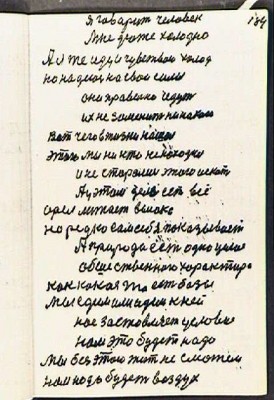 Я говорит человек
184
Мне даже холодно
А я же иду и чувствую холод
но надеюсь на свои силы
они правильно идут
их не заменит никако
Вот чего в жизни нашей
этого ми ни кто не походил
и не старался этого искат
А у этом деле ест всё
орел летает високо
но редко сам себя показывает
А природа ест одно целое
общественного характира
как какая то ест базы
Мы едим или идем к ней
нас заставляет условие
нам это будет надо
Мы без этого жит не сможем
нам надо будет воздух